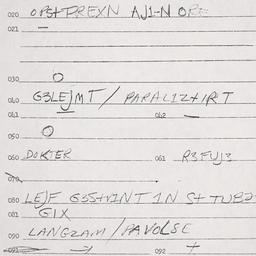 020 OPSTDREXN AJ1-N ORE
021 —
030 O
040 G3LEJMT / PARAL1Z+IRT
041 — 042 —
050 O
060 DOKTER 061 R3FUJ3
070
080 LEJF G3S+V1NT 1N S+TUB2
081 G1X
090 LANGZAM / PAVOLSE
091 → 092 +